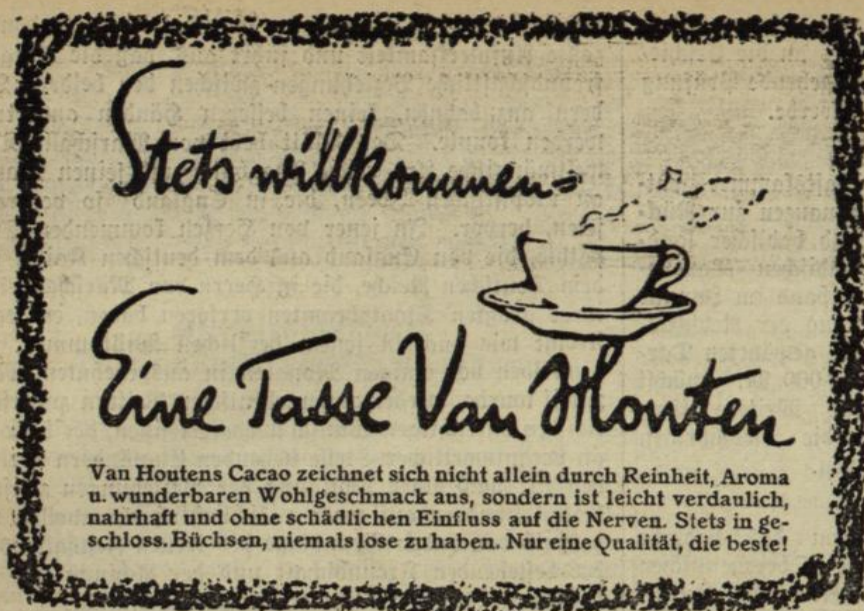 Stets willkommen=
Eine Tasse Van Houten
Van Houtens Cacao zeichnet sich nicht allein durch Reinheit, Aroma
u. wunderbaren Wohlgeschmack aus, sondern ist leicht verdaulich,
nahrhaft und ohne schädlichen Einfluss auf die Nerven. Stets in ge-
schloss. Büchsen, niemals lose zu haben. Nur eine Qualität, die beste!